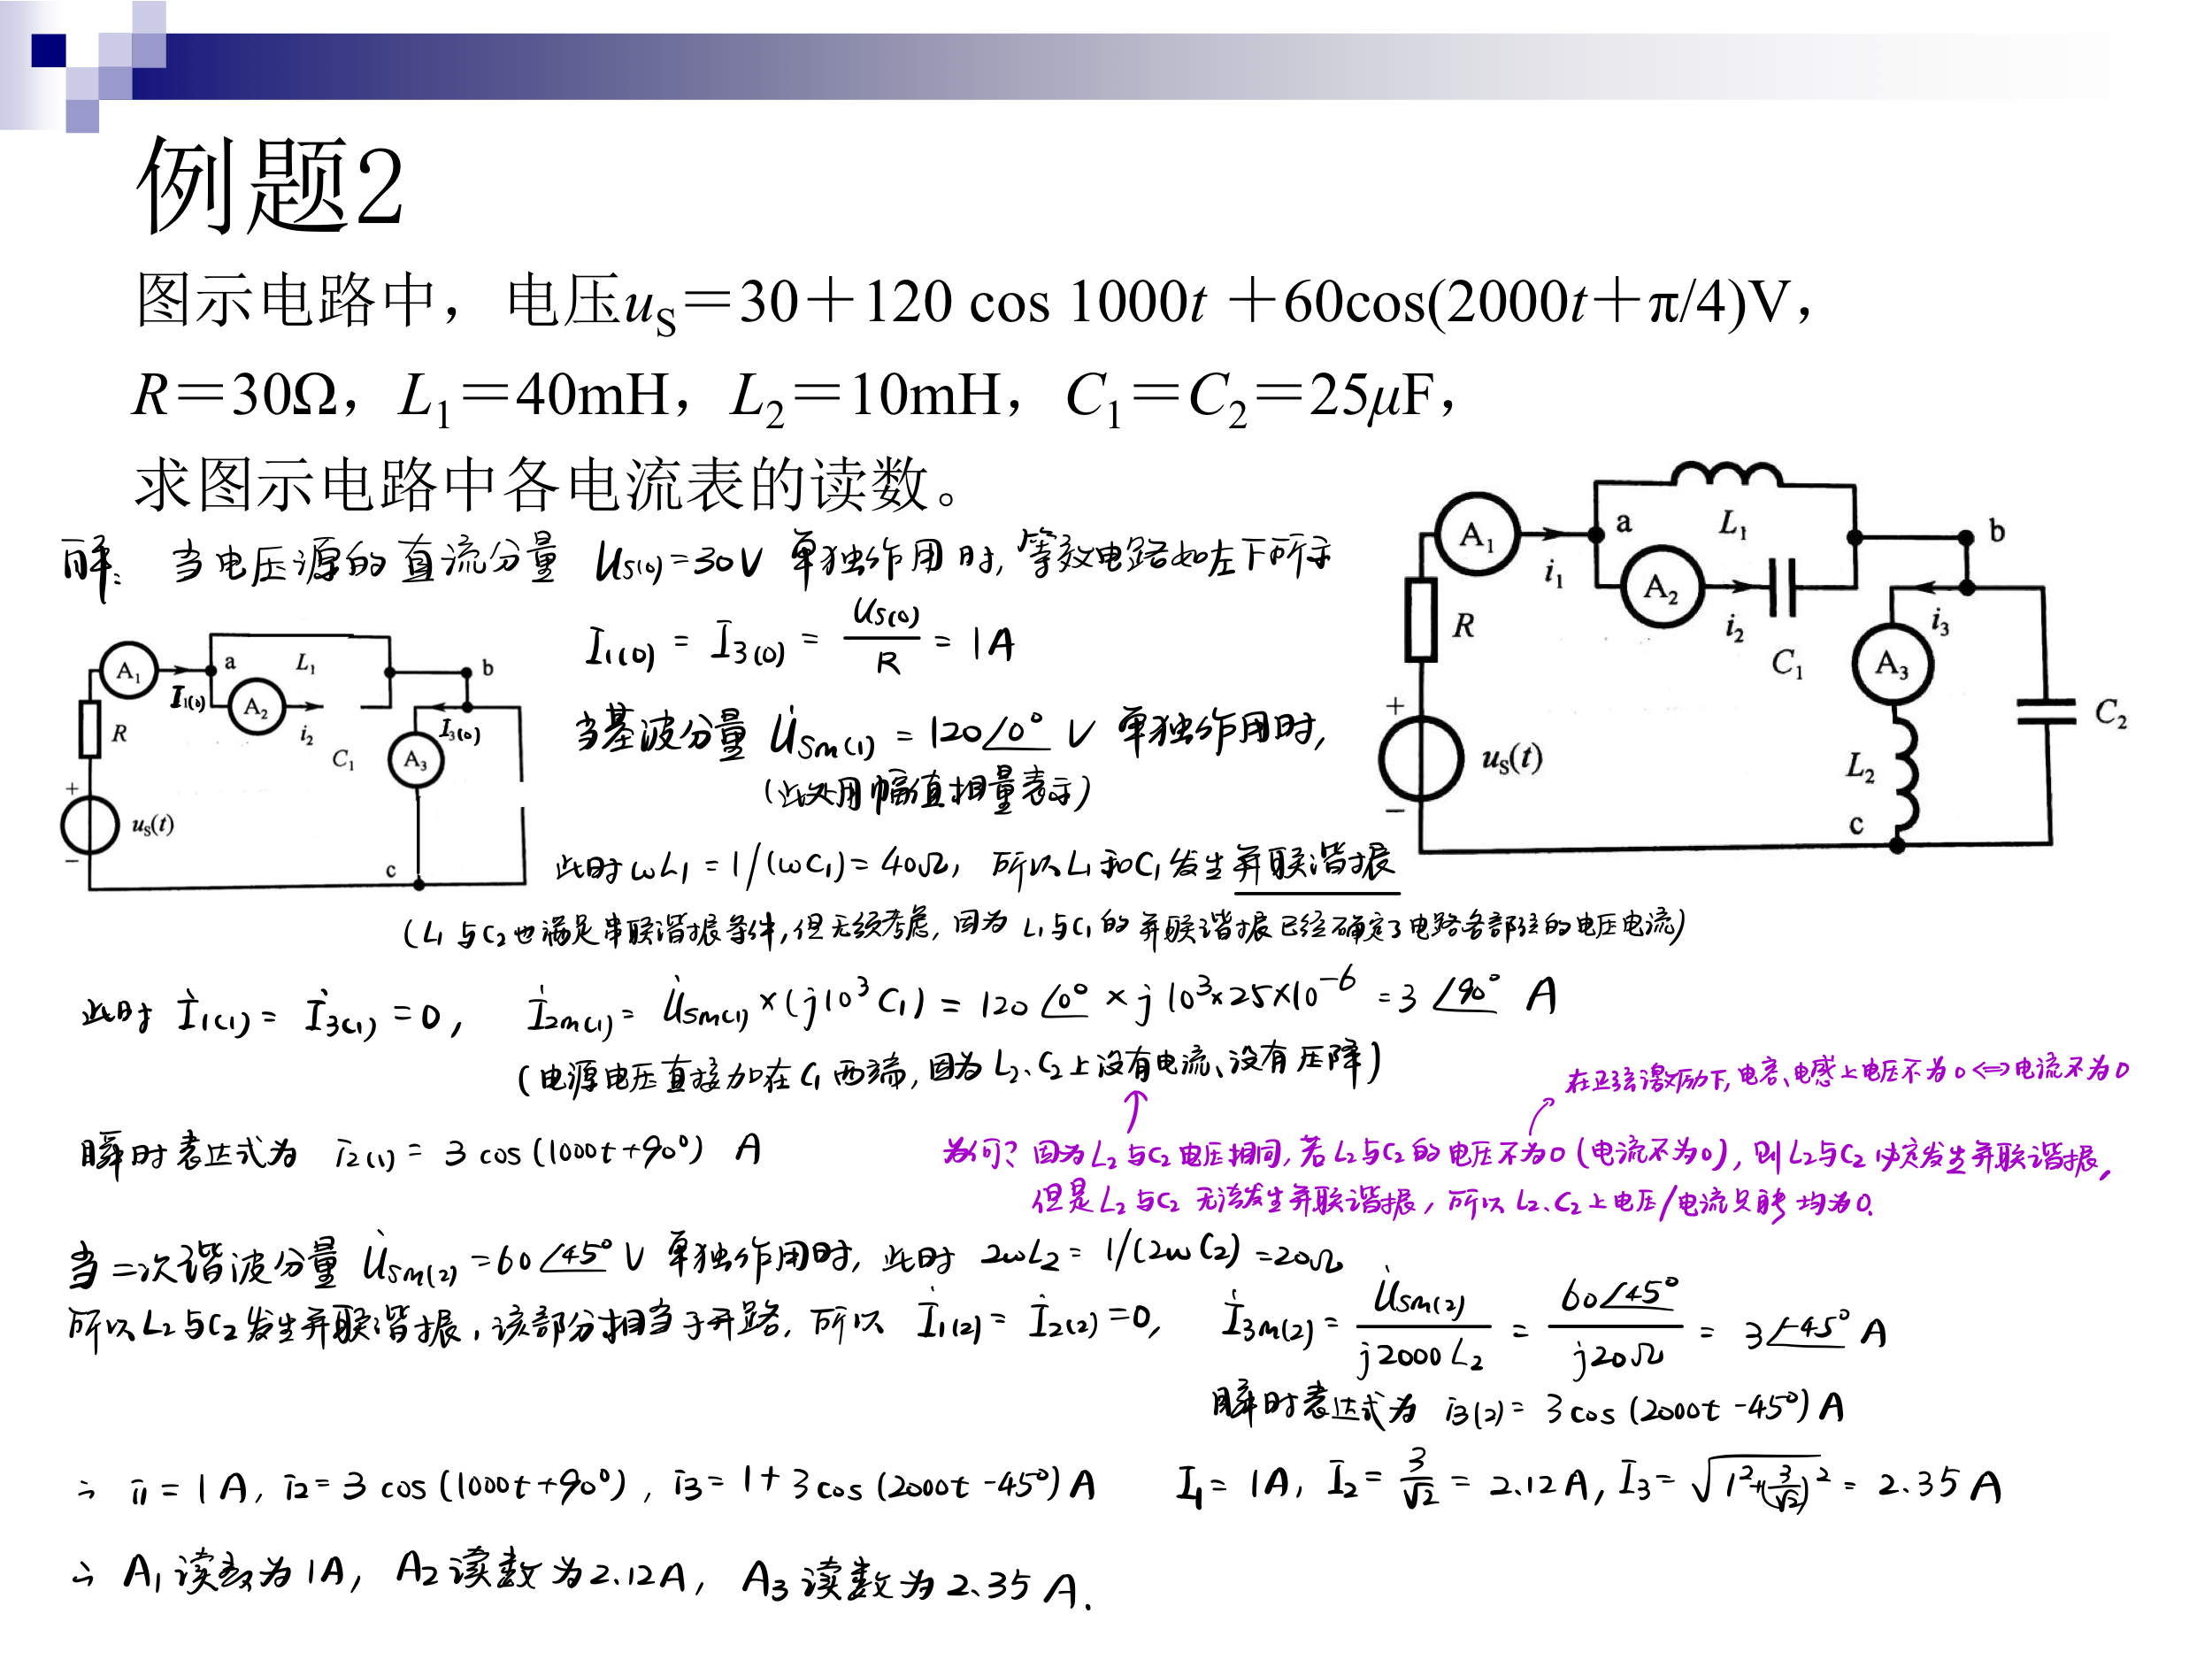 例题2
图示电路中，电压uS＝30＋120 cos 1000t ＋60cos(2000t＋π/4)V，
R＝30Ω，L1＝40mH，L2＝10mH，C1＝C2＝25μF，
求图示电路中各电流表的读数。
解: 当电压源的直流分量 US(0)=30V 单独作用时, 等效电路如左下所示
I1(0) = I3(0) = US(0)/R = 1A
A1 a L1 b
I1(0) A2 i2 C1 I3(0) A3
R
+ uS(t) −
c
A1 i1 a L1 b
A2 i2 C1 i3 A3
R
+ uS(t) −
L2 C2
c
当基波分量 U̇Sm(1) = 120∠0° V 单独作用时,
(此处用幅值相量表示)
此时 ωL1 = 1/(ωC1) = 40Ω, 所以L1和C1发生并联谐振
(L1与C2也满足串联谐振条件, 但无须考虑, 因为 L1与C1的并联谐振已经确定了电路各部分的电压电流)
此时 İ1(1) = İ3(1) = 0, İ2m(1) = U̇Sm(1) × (j10³C1) = 120∠0° × j10³×25×10⁻⁶ = 3∠90° A
(电源电压直接加在C1两端, 因为L2、C2上没有电流、没有压降)
在正弦激励下, 电容、电感上电压不为0 <=> 电流不为0
瞬时表达式为 i2(1) = 3 cos(1000t+90°) A
为何? 因为L2与C2电压相同, 若L2与C2的电压不为0(电流不为0), 则L2与C2必定发生并联谐振,
但是L2与C2无法发生并联谐振, 所以 L2、C2上电压/电流只能均为0.
当二次谐波分量 U̇Sm(2) = 60∠45° V 单独作用时, 此时 2ωL2 = 1/(2ωC2) = 20Ω
所以L2与C2发生并联谐振, 该部分相当于开路, 所以 İ1(2) = İ2(2) = 0, İ3m(2) = U̇Sm(2)/j2000L2 = 60∠45°/j20Ω = 3∠-45° A
瞬时表达式为 i3(2) = 3cos(2000t-45°) A
∴ i1 = 1A, i2 = 3 cos(1000t+90°), i3 = 1+3cos(2000t-45°) A I1 = 1A, I2 = 3/√2 = 2.12A, I3 = √(1²+(3/√2)²) = 2.35 A
∴ A1读数为1A, A2读数为2.12A, A3读数为2.35A.